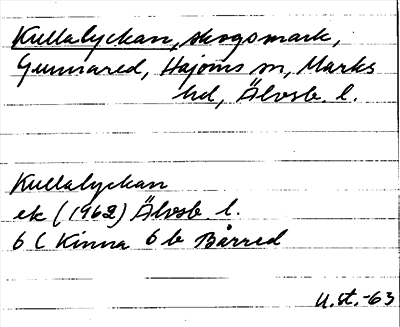 Kullalyckan, skogsmark,
Gunnared, Hajoms sn, Marks
hd, Älvsb. l.
Kullalyckan
ek (1962) Älvsb l.
6 C Kinna 6 b Bårred
U.st.-63